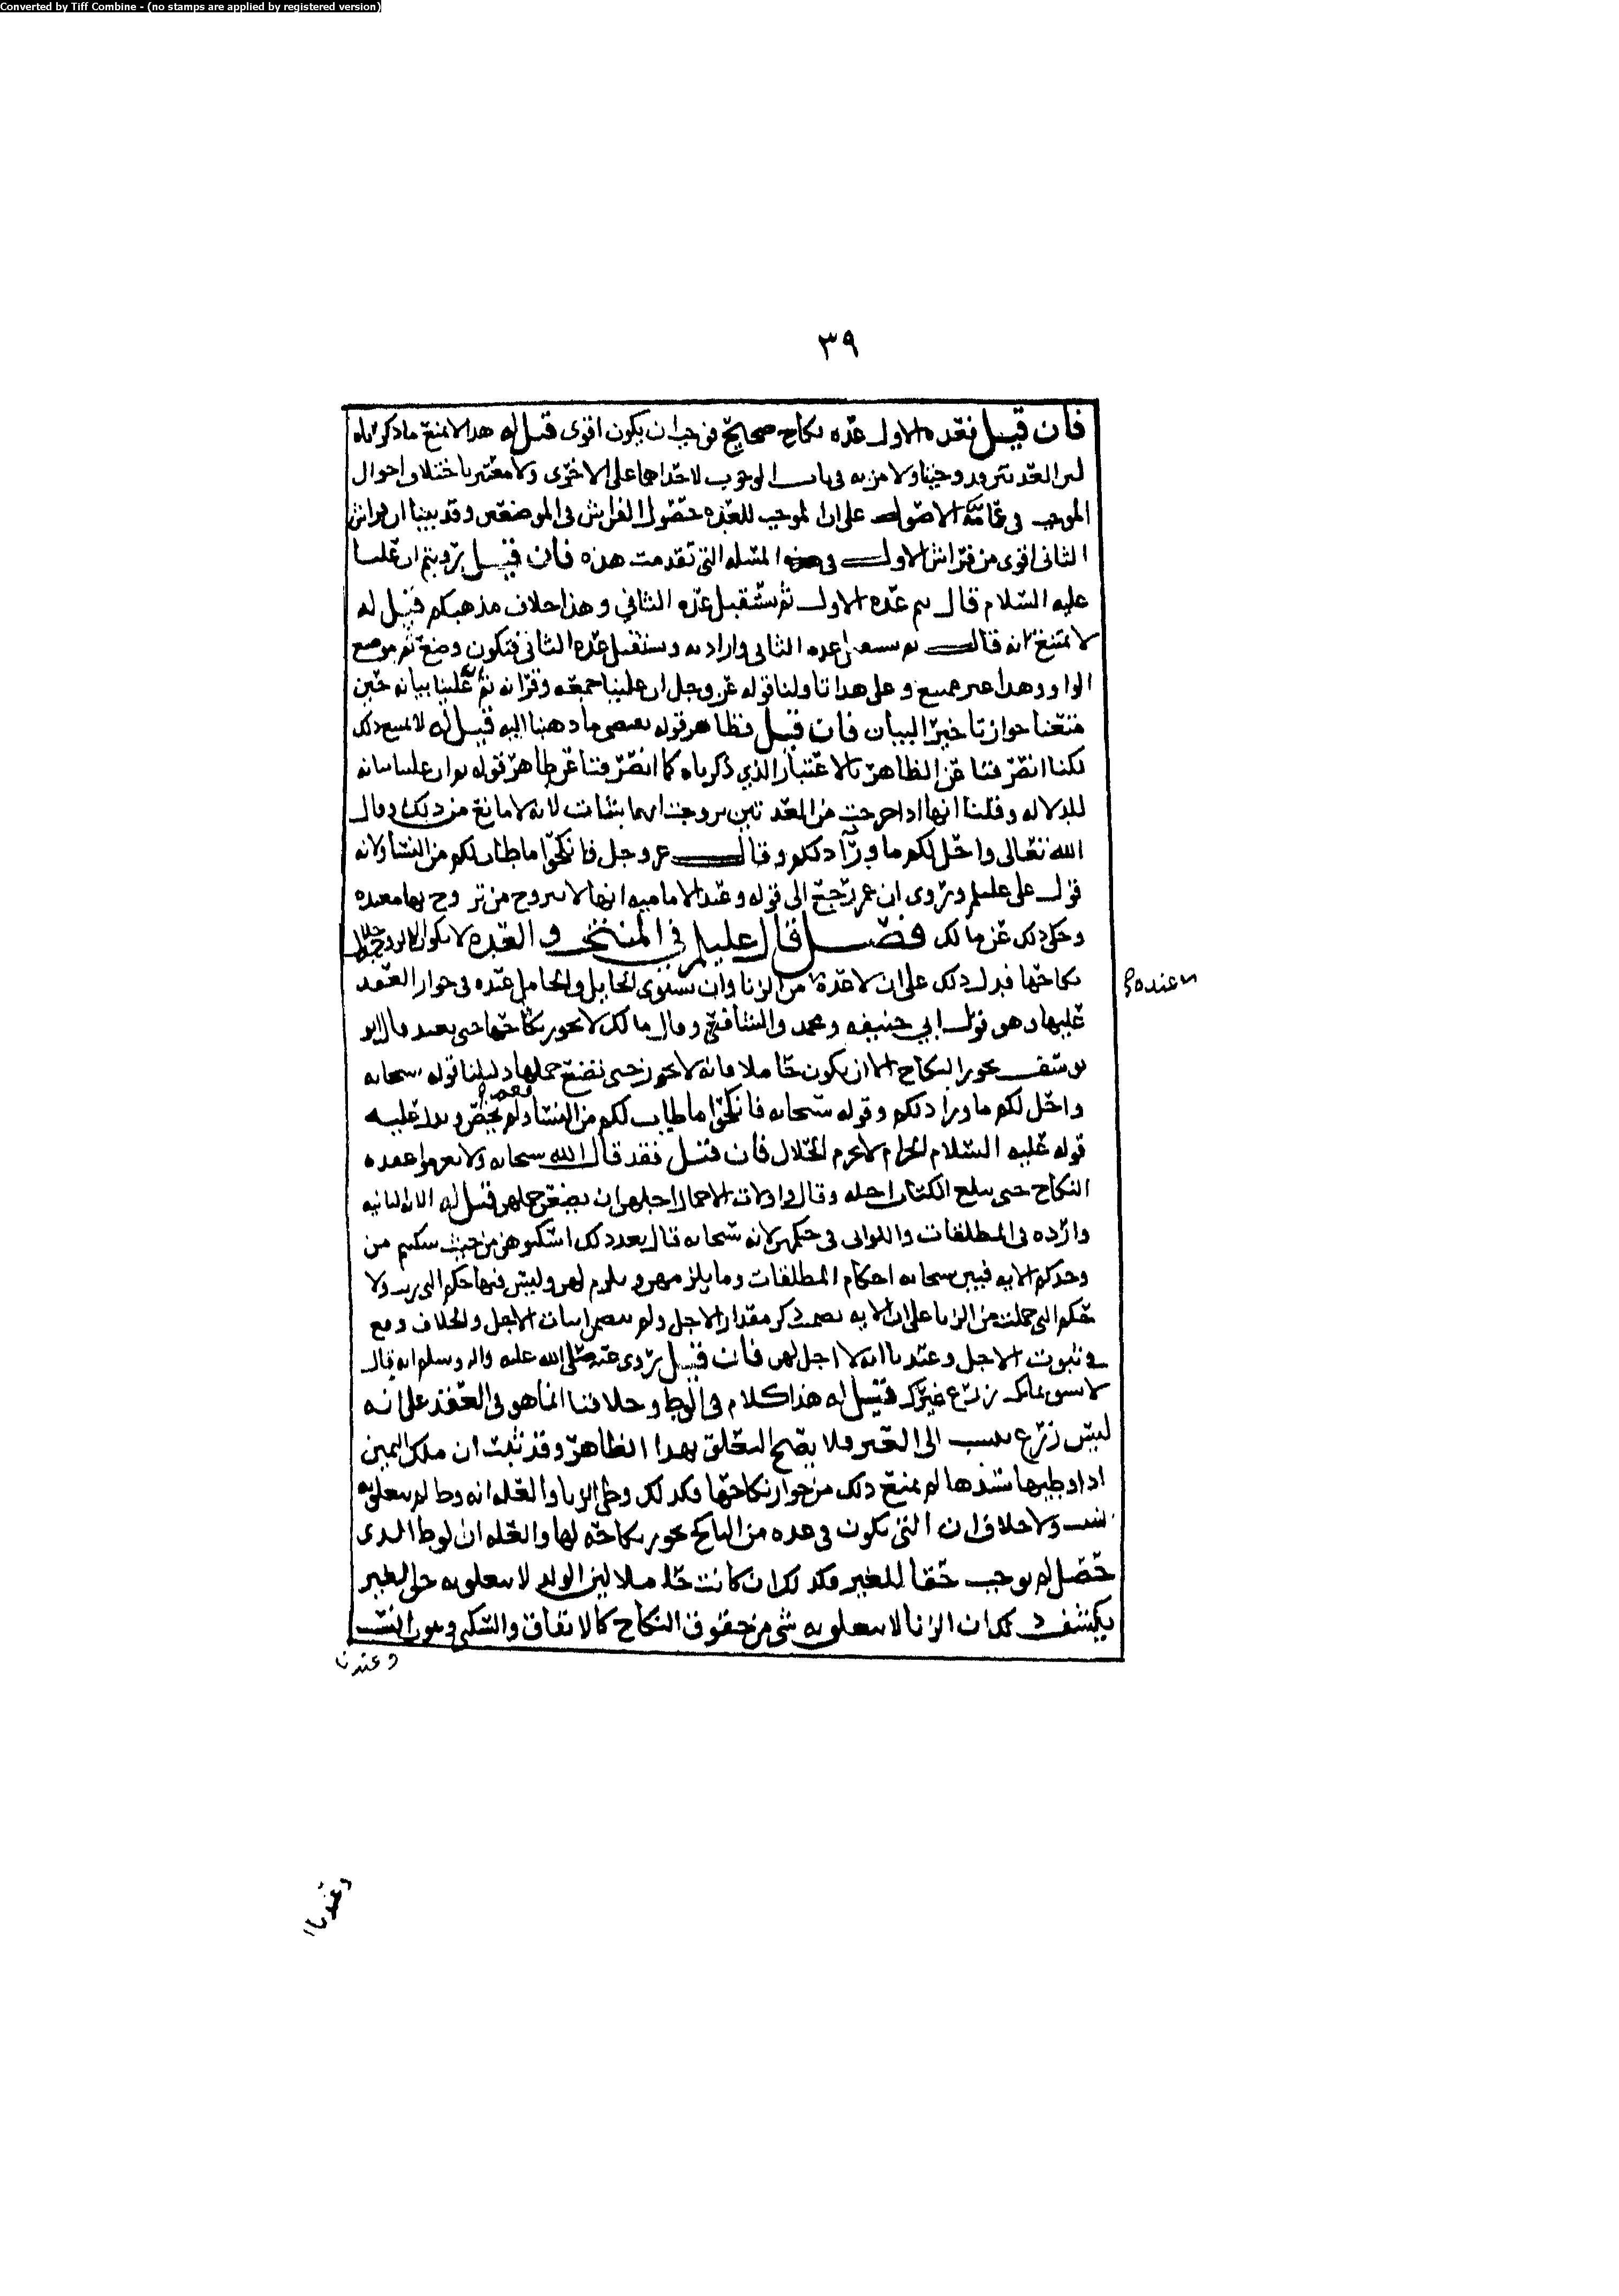 Converted by Tiff Combine - (no stamps are applied by registered version)
٣٩
فان قيل فعده الاول عده نكاح صحيح فوجب ان يكون اقوى قيل له هذا لا يمنع ما ذكرناه
العده ولا مزيه في باب الوجوب لاحداهما على الاخرى ولا معتبر باختلاف احوال
الموجب في عامة الاصول على ان الموجب للعده حصول الفراش في الموضعين وقد بينا ان فراش
الثاني اقوى من فراش الاول في المسله التي تقدمت هذه فان قيل رويتم ان عليا
عليه السلام قال تتم عده الاول ثم تستقبل عده الثاني وهذا خلاف مذهبكم قيل له
لا يمتنع انه قال ثم تستقبل عده الثاني واراد به وتستقبل عده الثاني فتكون وضع ثم موضع
الواو وهذا غير ممتنع وعلى هذا تاولنا قوله عز وجل ان علينا جمعه وقرانه ثم ان علينا بيانه حين
منعنا جواز تاخير البيان فان قيل فظاهر قوله يقتضي ما ذهبنا اليه قيل له لا يمنع ذلك
لكنا انصرفنا عن الظاهر بالاعتبار الذي ذكرناه كما انصرفنا عن ظاهر قوله ثم ان علينا بيانه
للدلاله وقلنا انها اذا خرجت من العدتين تزوجت ايهما شات لانه لا مانع من ذلك وقال
الله تعالى واحل لكم ما وراء ذلكم وقال عز وجل فانكحوا ما طاب لكم من النساء ولانه
قول علي عليلم وروى ان عمر رجع الى قوله وعند الاماميه انها لا تتزوج من تزوج بها معتده
وحكى ذلك عن مالك فصل قال عليلم في المنتخب والعده لا تكون الا
نكاحها فدل ذلك على ان لا عده من الزنا وان يستوى الحايل والحامل عنده في جواز العقد
عنده
عليها وهو قول ابي حنيفه ومحمد والشافعي وقال مالك لا يجوز نكاحها حتى تعتد قال ابو
يوسف يجوز النكاح الا ان يكون حاملا فانه لا يجوز حتى تضع حملها دليلنا قوله سبحانه
واحل لكم ما وراء ذلكم وقوله سبحانه فانكحوا ما طاب لكم من النساء ولم يخص ويدل عليه
قوله عليه السلام الحرام لا يحرم الحلال فان قيل فقد قال الله سبحانه ولا تعزموا عقده
النكاح حتى يبلغ الكتاب اجله وقال واولات الاحمال اجلهن ان يضعن حملهن قيل له الايه الثانيه
وارده في المطلقات واللواتي في حكمهن لانه سبحانه قال بعد ذلك اسكنوهن من حيث سكنتم من
وجدكم الايه فبين سبحانه احكام المطلقات وما يلزمهن ويلزم لهن وليس فيها حكم التي زنت ولا
حكم التي حملت من الزنا على ان الايه تضمنت ذكر مقدار الاجل ولم تتضمن اثبات الاجل والخلاف وقع
في ثبوت الاجل وعندنا انه لا اجل لهن فان قيل روى عنه صلى الله عليه واله وسلم انه قال
لا تسق بمائك زرع غيرك قيل له هذا كلام في الوطء وخلافنا انما هو في العقد على انه
ليس زرع ينسب الى الغير فلا يصح التعلق بهذا الظاهر وقد ثبت ان ملك اليمين
اذا وطيها سيدها لم يمنع ذلك من جواز نكاحها فكذلك وطى الزنا والعله انه وطا لم يتعلق به
نسب ولا خلاف ان التي تكون في عده من الناكح يجوز نكاحه لها والعله ان الوطء الذي
حصل لم يوجب حقا للغير فكذلك ان كانت حاملا لان الولد لا يتعلق به حق الغير
يكشف ذلك ان الزنا لا يتعلق به شي من حقوق النكاح كالانفاق والسكنى وثبوت النسب
وعندنا
وعندنا